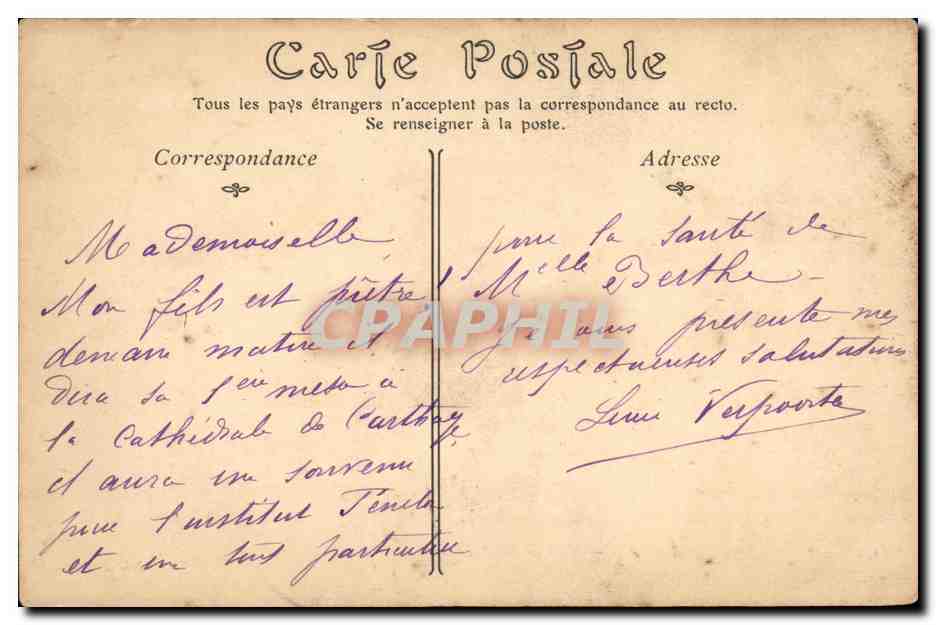 Carte Postale
Tous les pays étrangers n'acceptent pas la correspondance au recto.
Se renseigner à la poste.
Correspondance
Mademoiselle
Mon fils est prêtre !
demain matin il
dira sa 1ère messe à
la Cathédrale de Carthage
il aura un souvenir
pour l'institut
et un tout particulier
Adresse
pour la santé de
Melle Berthe -
Je vous présente mes
respectueuses salutations
CPAPHIL